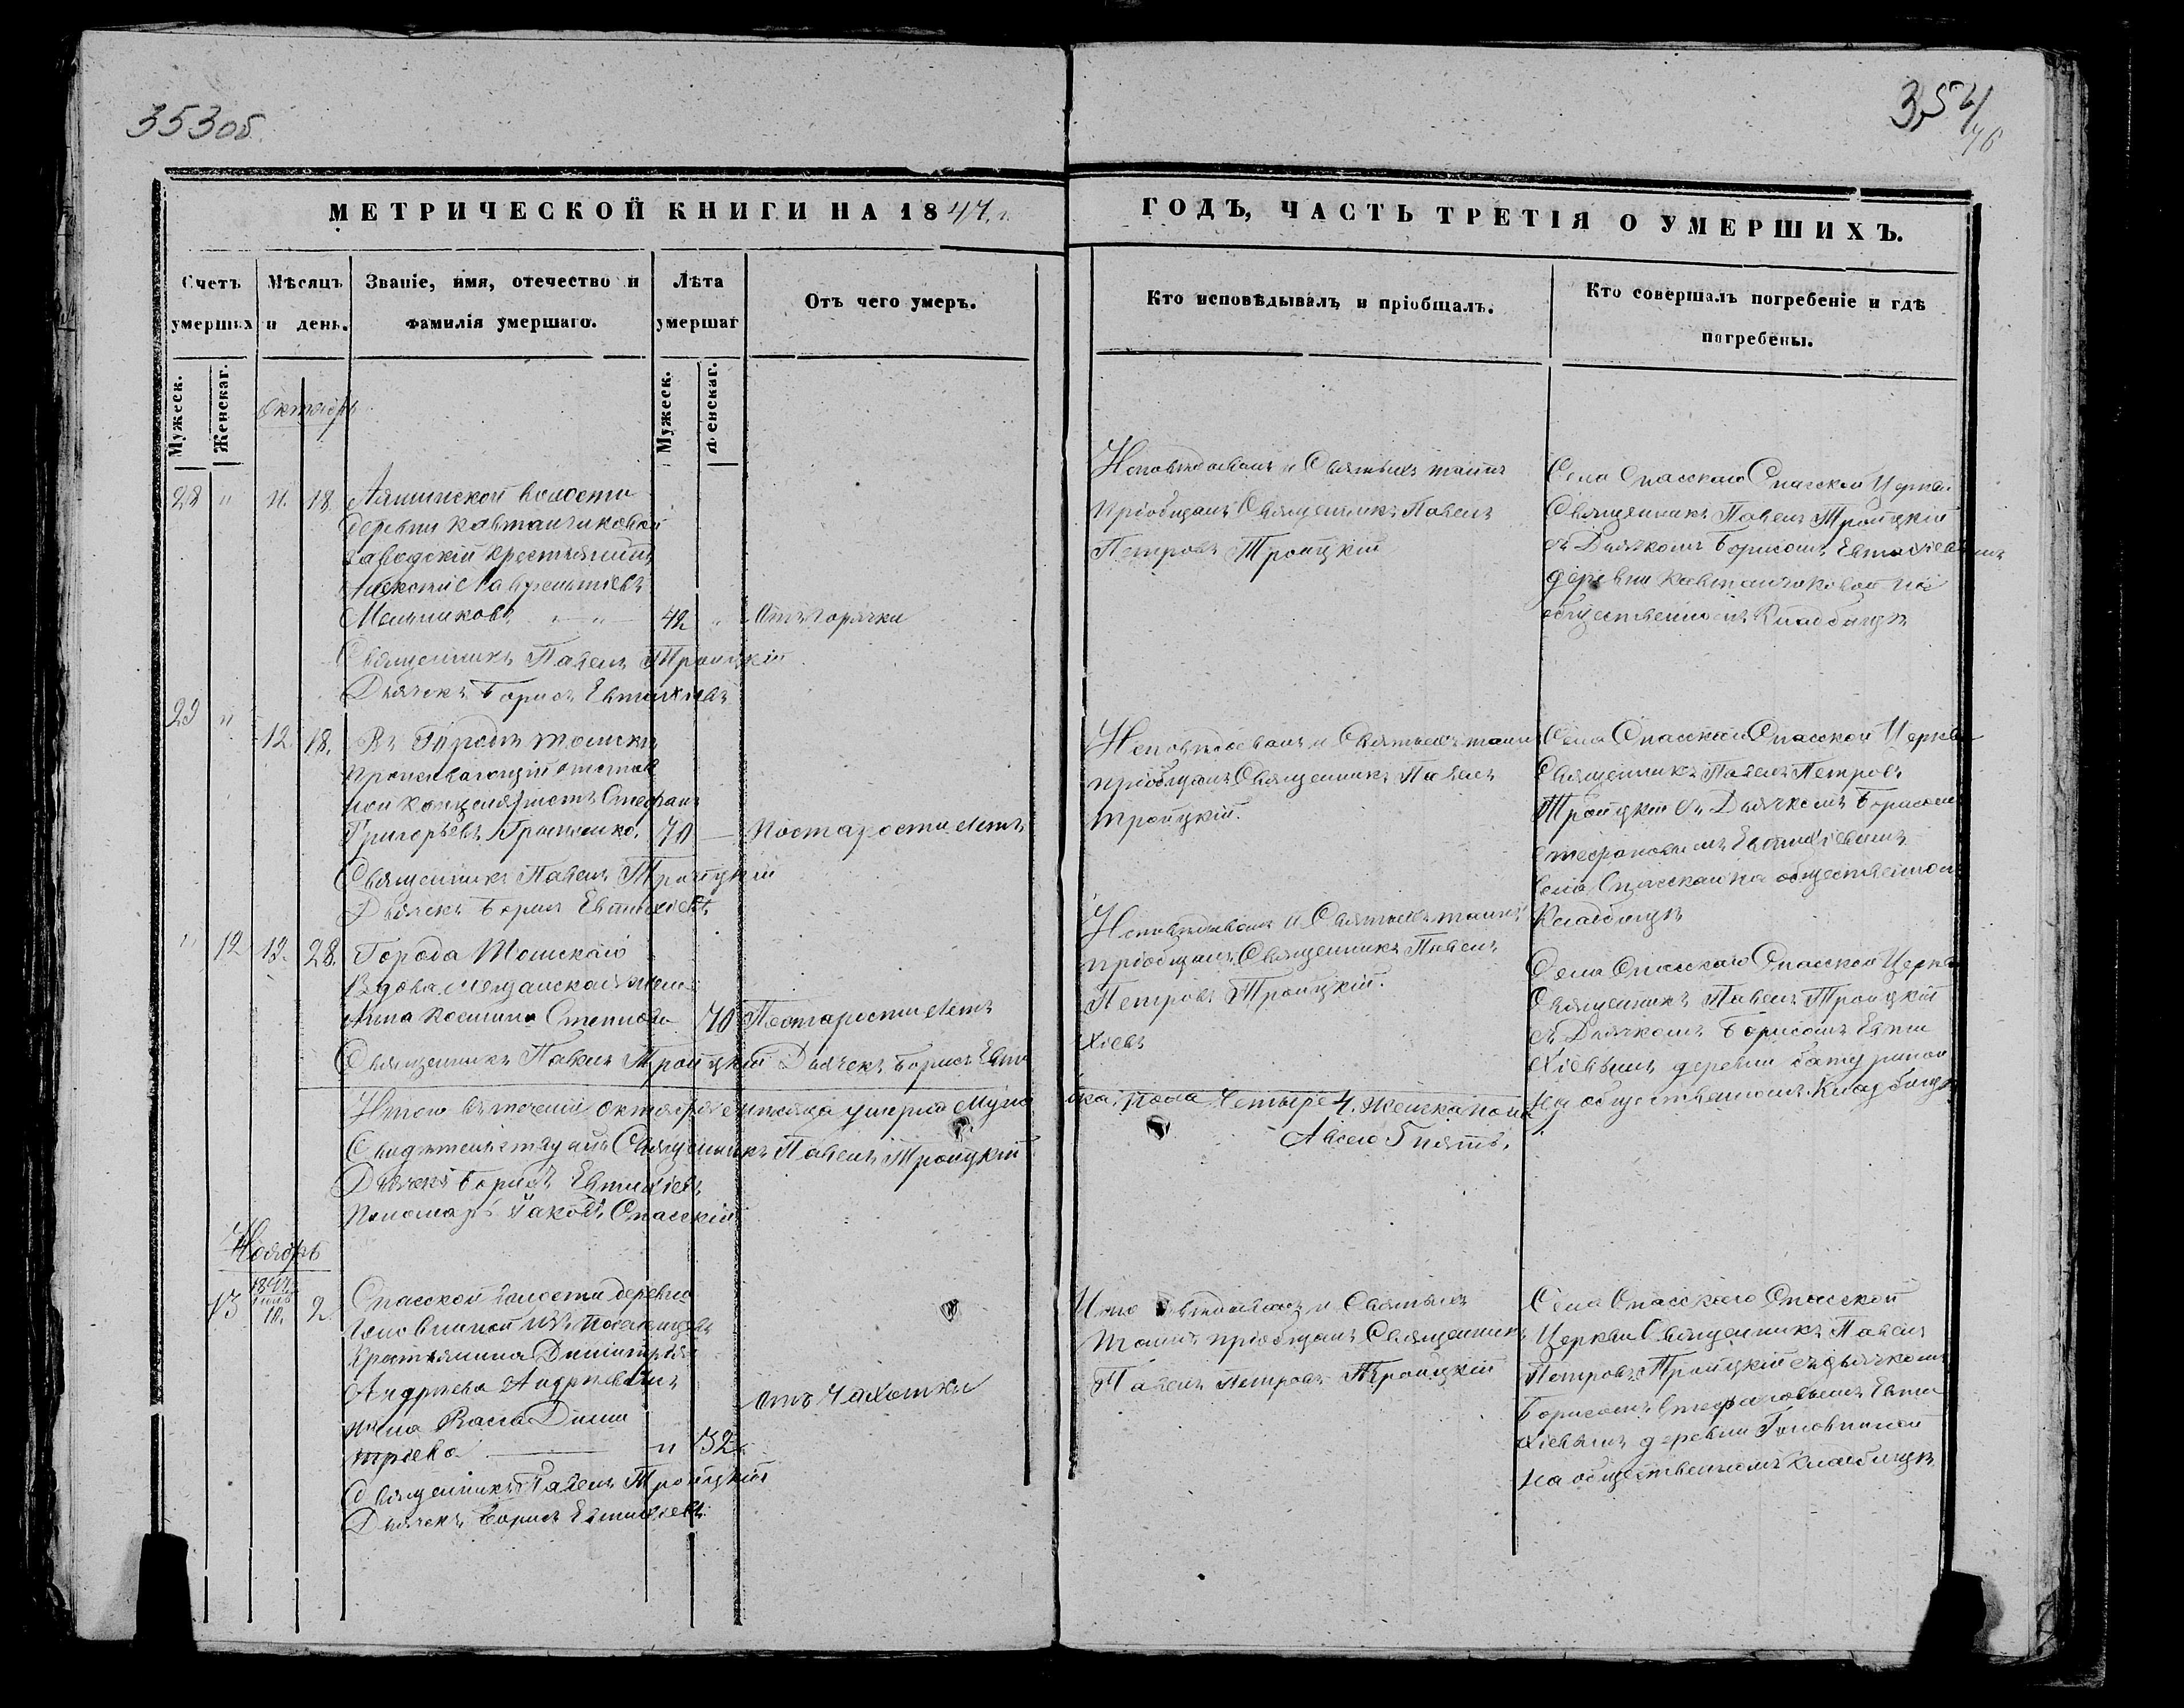 353об.
354
МЕТРИЧЕСКОЙ КНИГИ НА 1844 г.
ГОДЪ, ЧАСТЬ ТРЕТІЯ О УМЕРШИХЪ.
Счетъ умерших
Мѣсяцъ и день.
Званіе, имя, отечество и фамилія умершаго.
Лѣта умершаг
Отъ чего умеръ.
Кто исповѣдывалъ и пріобщалъ.
Кто совершалъ погребеніе и гдѣ погребены.
Мужеск.
Женскаг.
Мужеск.
Женскаг.
октябрь
28 " 18
волости
деревни Кавтанчиковой
заводскій крестьянинъ
Алексѣй Лаврентіевъ
Мельниковъ 42 " Отъ горячки
Священникъ Павелъ Троицкій
Дьячекъ Борисъ Евтихіевъ
Исповѣдовалъ и Святыхъ таинъ
пріобщалъ Священникъ Павелъ
Петровъ Троицкій
Села Спасскаго Спасской Церкви
Священникъ Павелъ Троицкій
съ Дьячкомъ Борисомъ Евтихіевымъ
деревни Кавтанчиковой на
общественномъ Кладбищѣ
29 "
12. 18. Въ Городѣ Томскѣ
проживающій отстав
ной Канцеляристъ Стефанъ
Григорьевъ 70 — По старости летъ
Священникъ Павелъ Троицкій
Дьячекъ Борисъ Евтихіевъ
Исповѣдовалъ и Святыхъ таинъ
пріобщалъ Священникъ Павелъ
Троицкій.
Села Спасскаго Спасской Церкви
Священникъ Павелъ Петровъ
Троицкій съ Дьячкомъ Борисомъ
Стефановымъ Евтихіевымъ
Села Спасскаго на общественномъ
Кладбищѣ
" 12 12. 28. Города Томскаго
Вдова мещанская жена
Анна Космина 70 По старости летъ
Священникъ Павелъ Троицкій Дьячекъ Борисъ Евти
хіевъ
Исповѣдовалъ и Святыхъ таинъ
пріобщалъ Священникъ Павелъ
Петровъ Троицкій.
Села Спасскаго Спасской Церкви
Священникъ Павелъ Троицкій
съ Дьячкомъ Борисомъ Евти
хіевымъ деревни Батуриной
на общественномъ Кладбищѣ
Итого въ теченіи октября мѣсяца умерло Муже
ска пола Четыре 4. женска пола
А всего 5 пять.
Священникъ Павелъ Троицкій
Дьячекъ Борисъ Евтихіевъ
Пономарь Іаковъ Спасскій
Ноябрь
13 10. 2 Спасской волости деревни
Головниной изъ поселенцевъ
крестьянина Димитрія
Андреева
жена Васса Дими
тріева — " 32 отъ Чахотки
Священникъ Павелъ Троицкій
Дьячекъ Борисъ Евтихіевъ
и Святыхъ
Таинъ пріобщалъ Священникъ
Павелъ Петровъ Троицкій
Села Спасскаго Спасской
Церкви Священникъ Павелъ
Петровъ Троицкій съ дьячкомъ
Борисомъ Стефановымъ Евти
хіевымъ деревни Головниной
на общественномъ Кладбищѣ